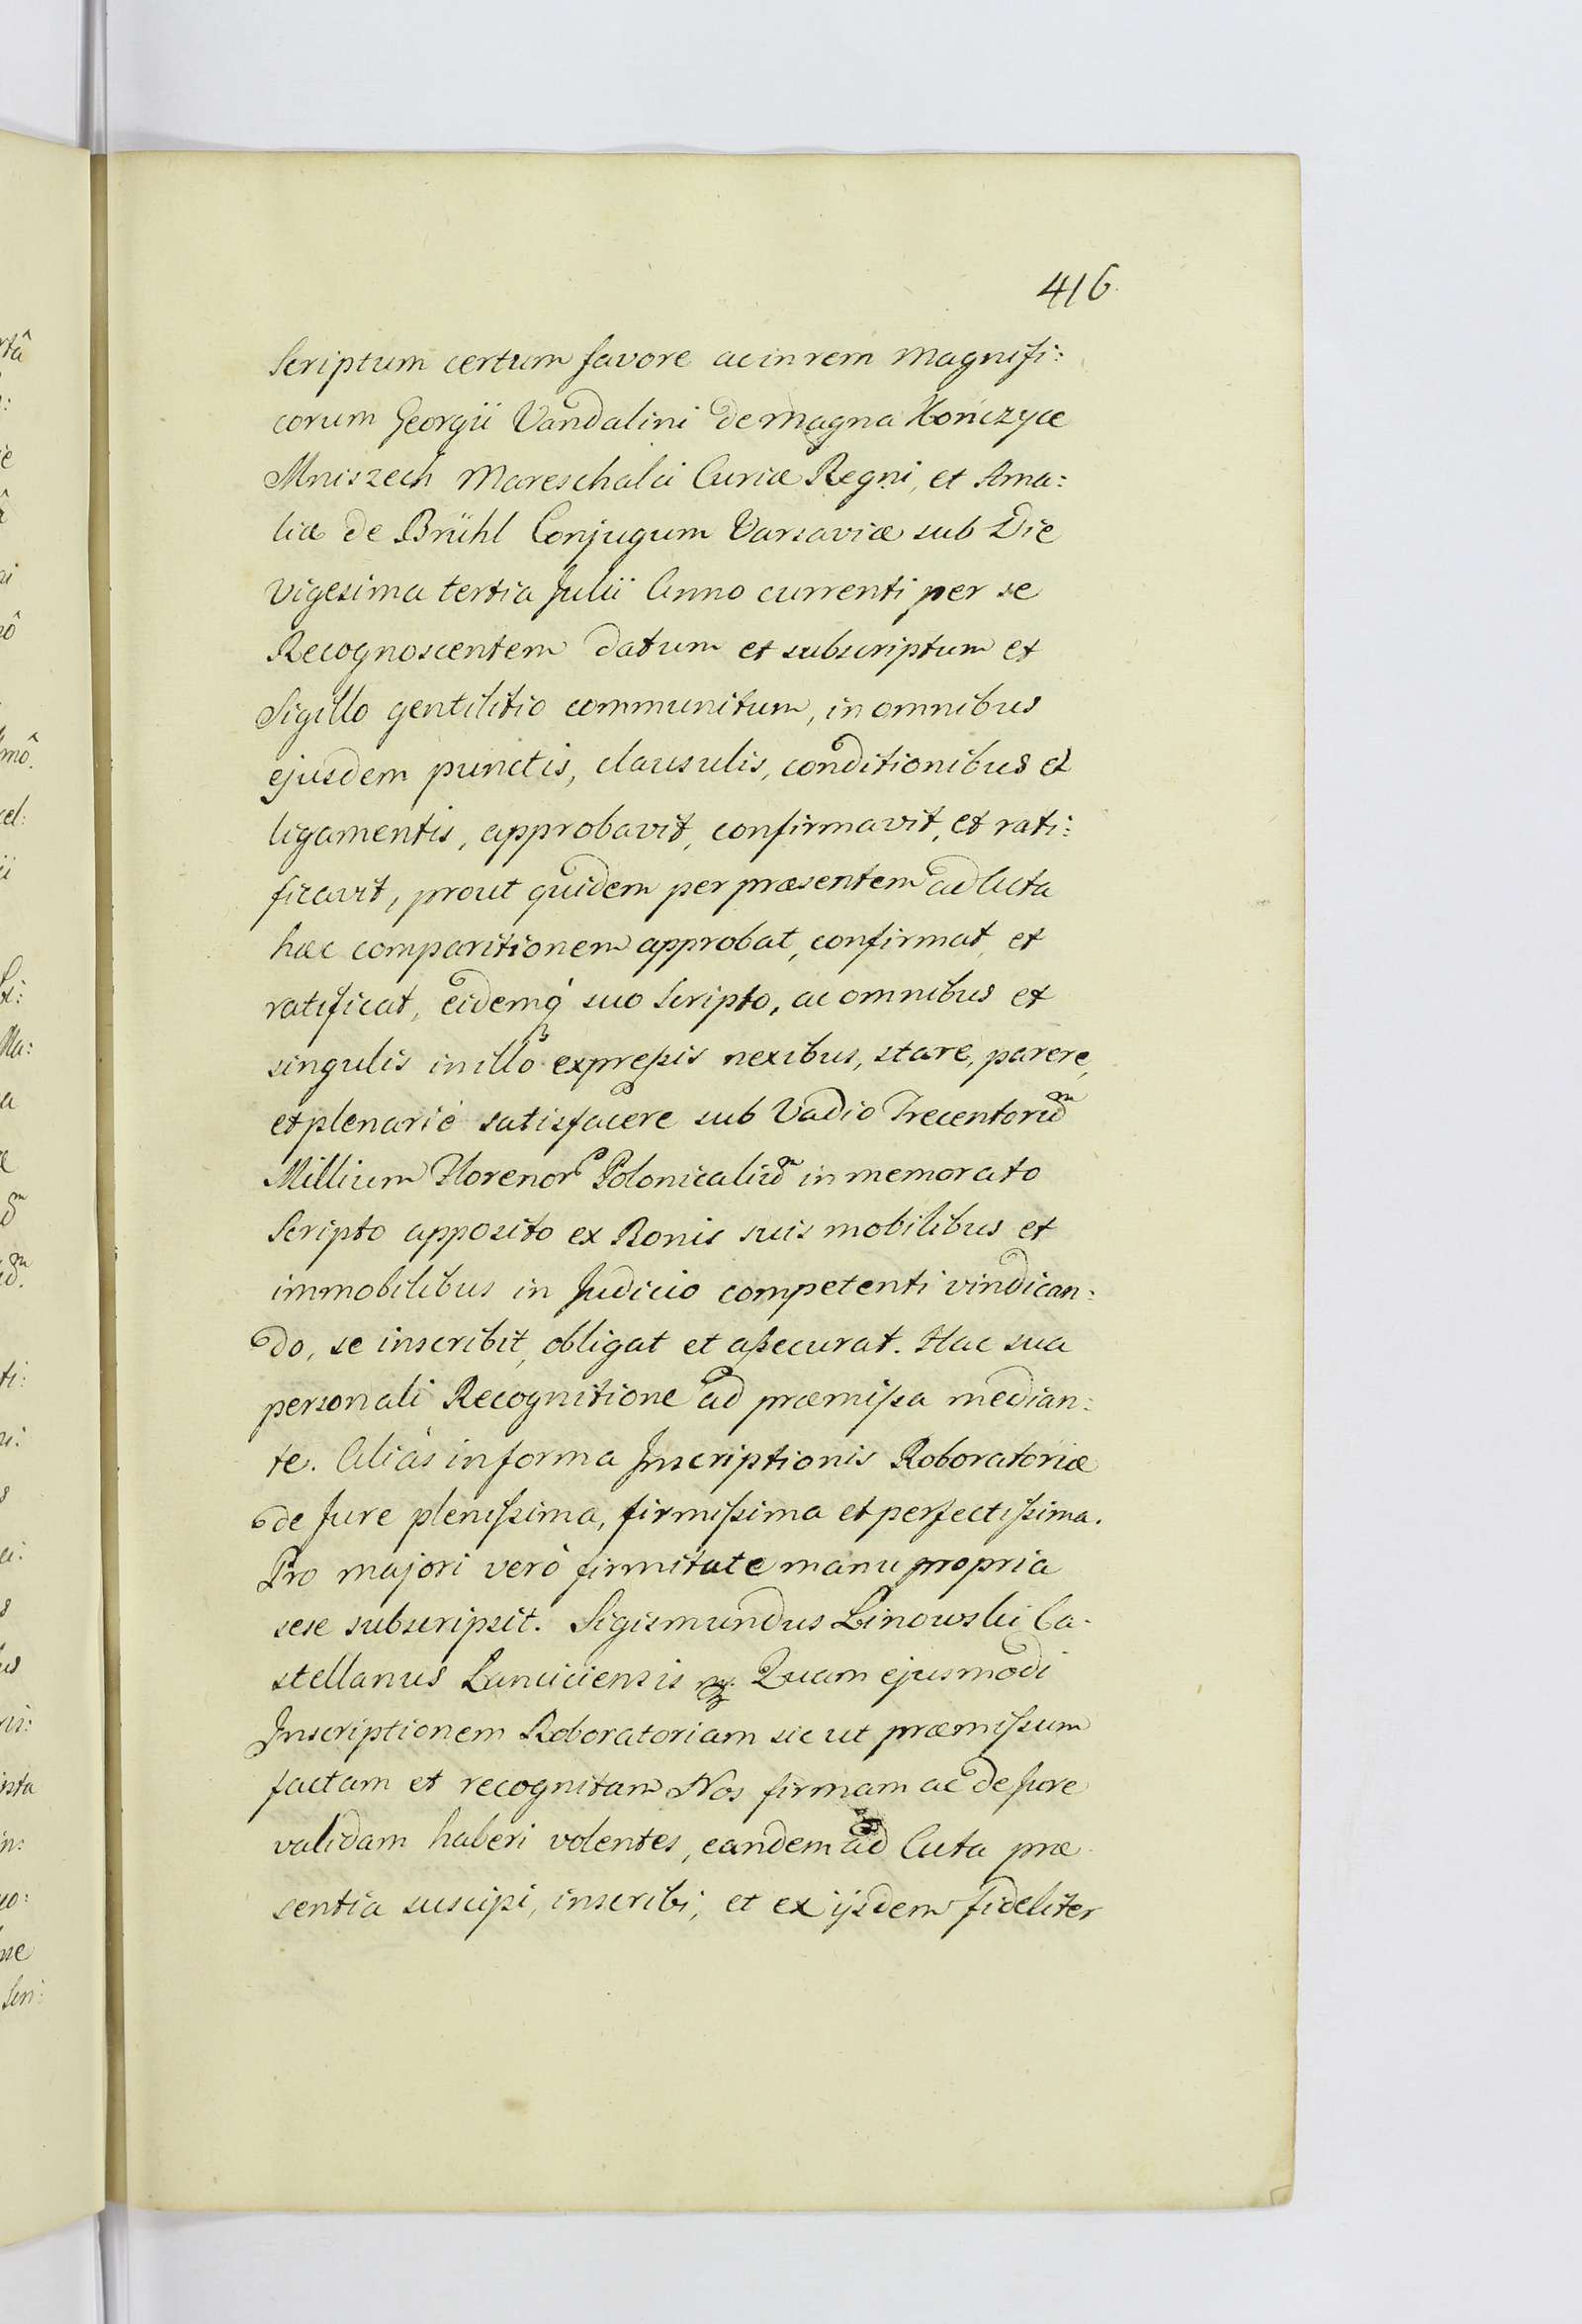 416
Scriptum certum favore ac in rem Magnifi:
corum Georgii Vandalini de Magna Kończyce
Mniszech Mareschalci Curiæ Regni, et Ama:
liæ de Brühl Conjugum Varsaviæ sub Die
Vigesima tertia Julii Anno currenti per se
Recognoscentem datum et subscriptum et
Sigillo gentilitio communitum, in omnibus
ejusdem punctis, clausulis, conditionibus et
ligamentis, approbavit, confirmavit, et rati:
ficavit, prout quidem per præsentem ad Acta
hæc comparitionem approbat, confirmat, et
ratificat, eidemq́ suo Scripto, ac omnibus et
singulis in illo expreſsis nexibus, stare, parere,
et plenarié satisfacere sub Vadio Trecentorũ
Millium Florenor Polonicaliũ in memorato
Scripto apposito ex Bonis suis mobilibus et
immobilibus in Judicio competenti vindican:
do, se inscribit, obligat et aſsecurat. Hac sua
personali Recognitione ad præmiſsa median:
te. Aliàs in forma Inscriptionis Roboratoriæ
de Jure pleniſsima, firmiſsima et perfectiſsima.
Pro majori verò firmitate manu propria
sese subscripsit. Sigismundus Linowski Ca:
stellanus Lanciciensis mp. Quam ejusmodi
Inscriptionem Roboratoriam sic ut præmiſsum
factam et recognitam Nos firmam ac de Jure
validam haberi volentes, eandem ad Acta præ
sentia suscipi, inscribi, et ex ijsdem fideliter